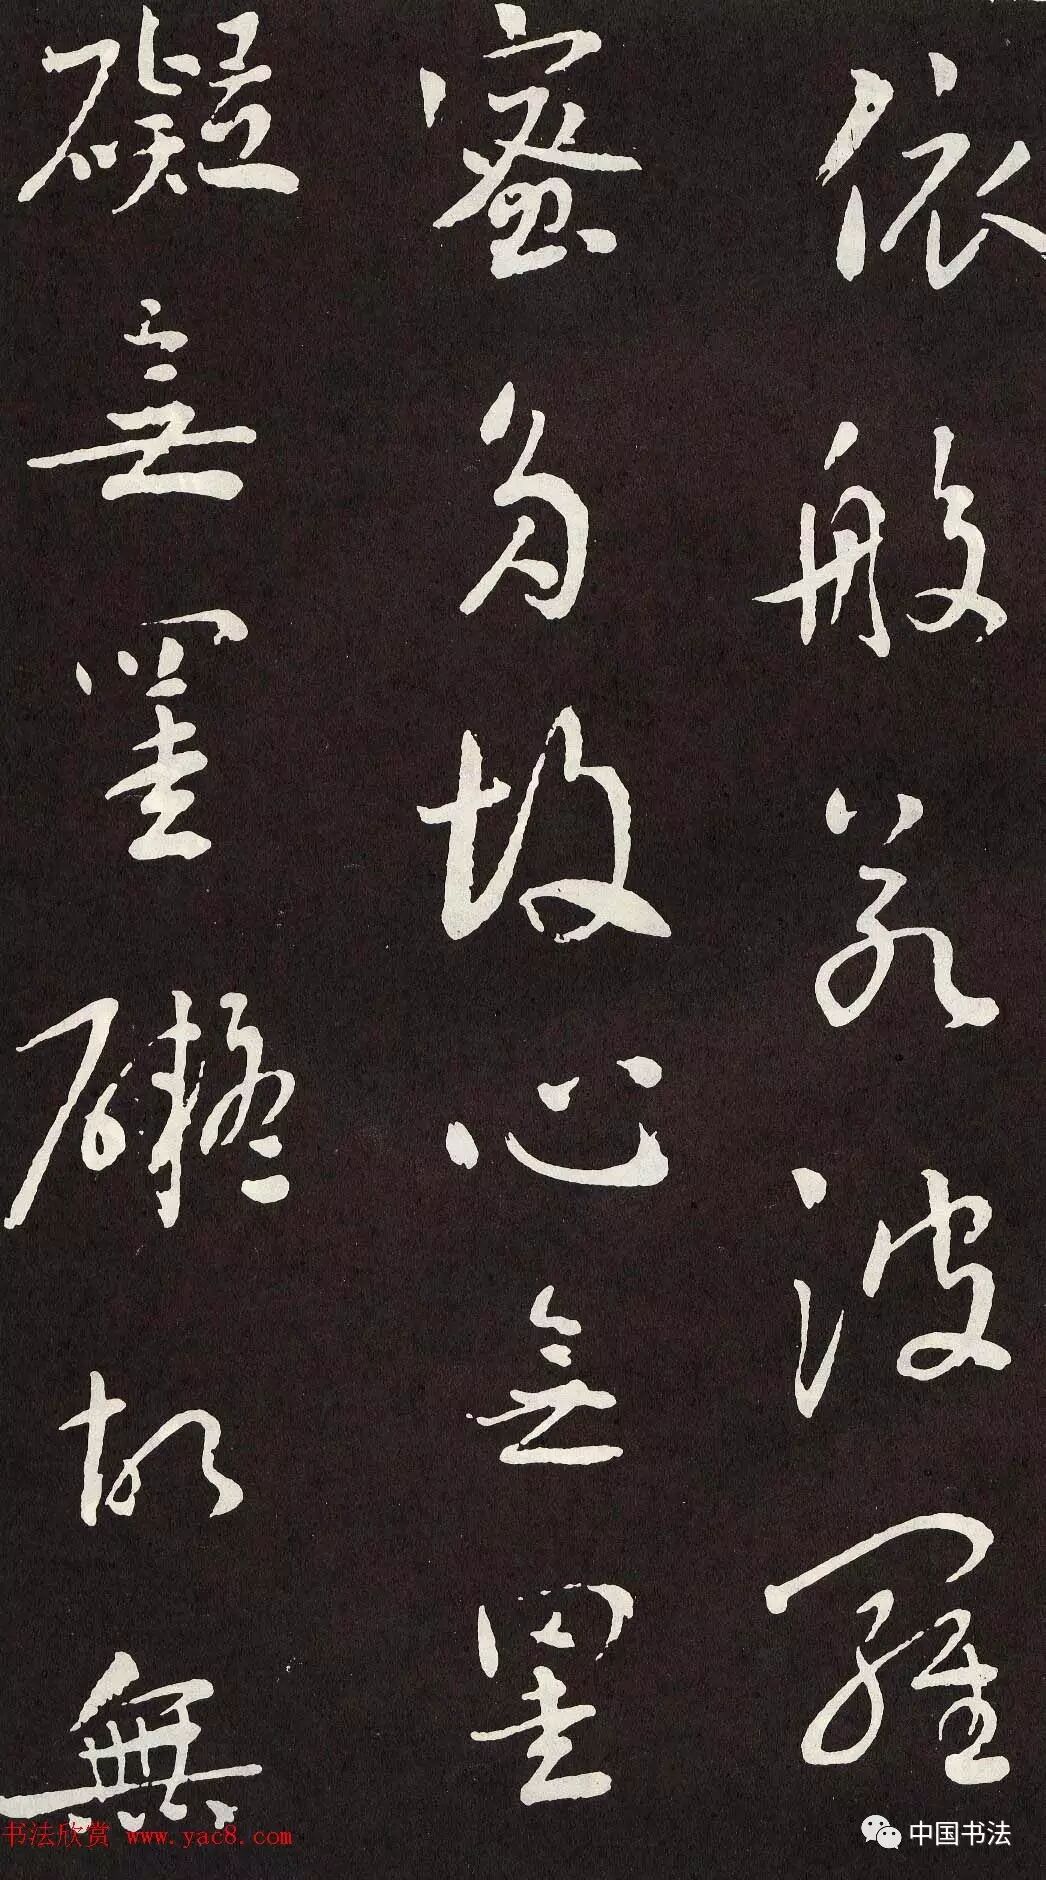 依般若波羅
蜜多故心無罣
礙無罣礙故無
书法欣赏 www.yac8.com
中国书法